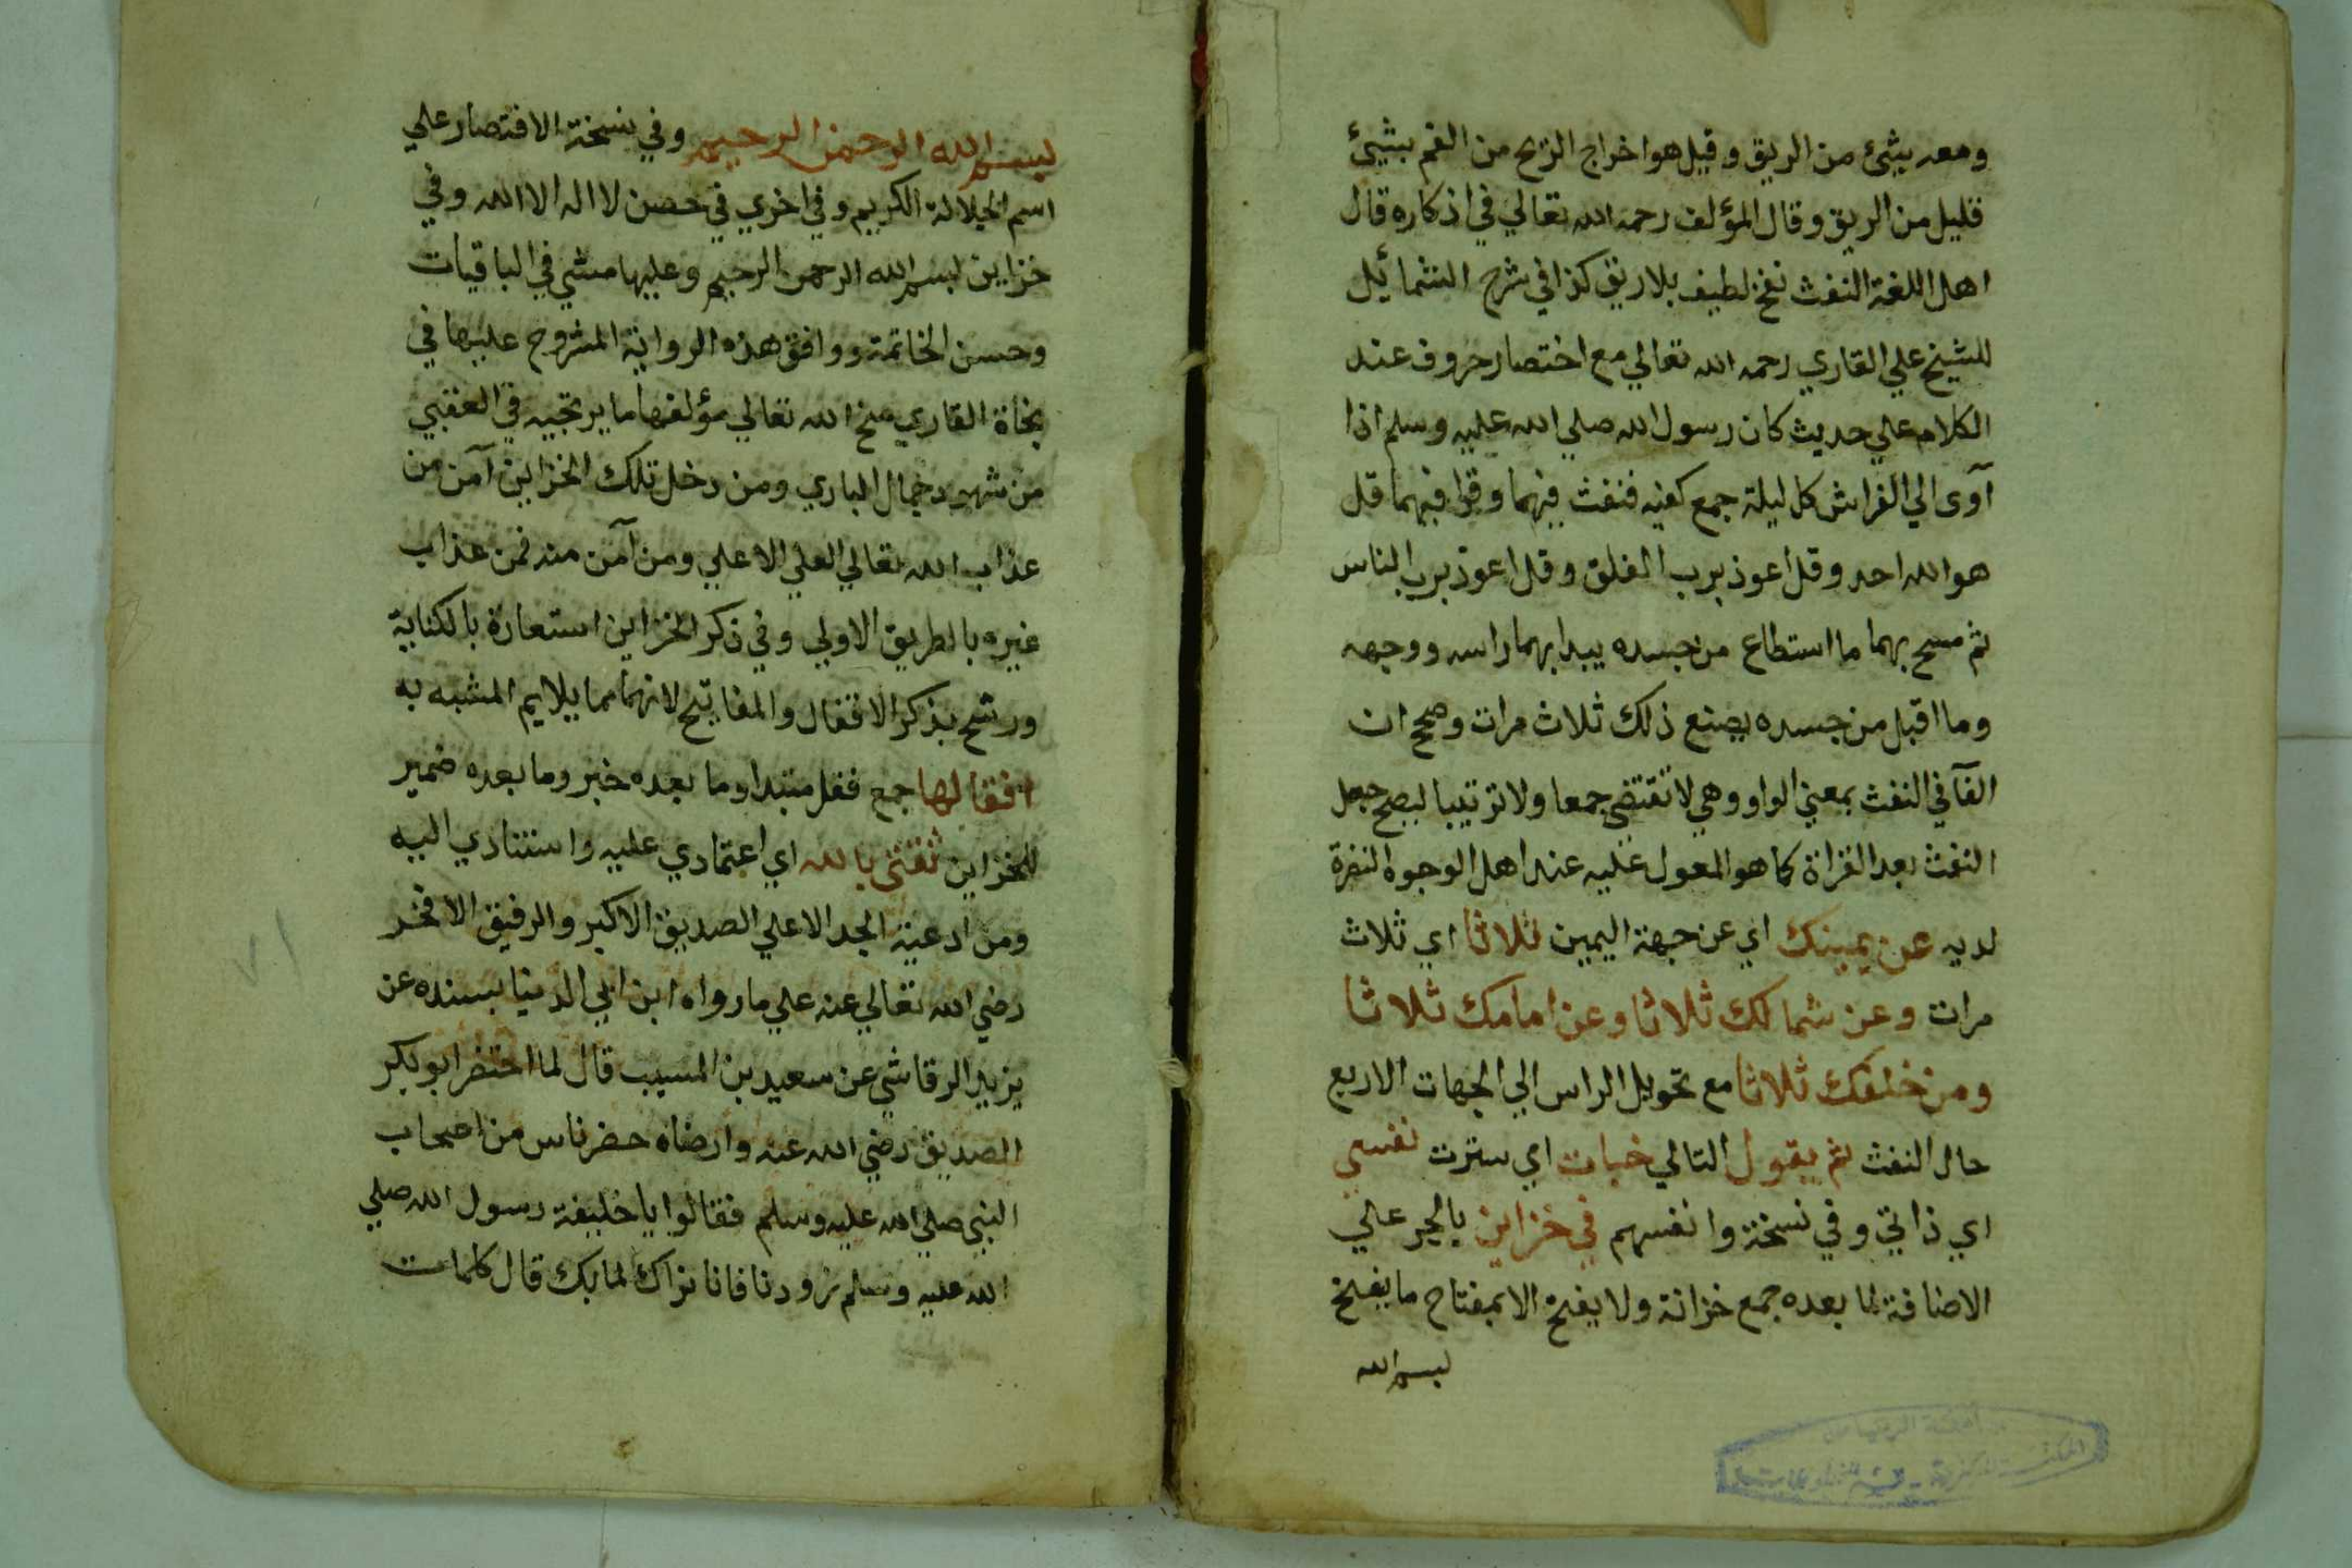 ومعه بشئ من الريق وقيل هو اخراج الريح من الفم بشيئ
قليل من الريق وقال المؤلف رحمه الله تعالي في اذكاره قال
اهل اللغة النفث نفخ لطيف بلا ريق كذا في شرح الشمائيل
للشيخ علي القاري رحمه الله تعالي مع اختصار حروف عند
الكلام علي حديث كان رسول الله صلي الله عليه وسلم اذا
آوى الي الفراش كل ليلة جمع كفيه فنفث فيهما وقرا فيهما قل
هو الله احد وقل اعوذ برب الفلق وقل اعوذ برب الناس
ثم مسح بهما ما استطاع من جسده يبدا بهما راسه ووجهه
وما اقبل من جسده يصنع ذلك ثلاث مرات وصح ان
الفآ في النفث بمعني الواو وهي لا تقتضي جمعا ولا ترتيبا ليصح جعل
النفث بعد القراة كما هو المعول عليه عند اهل الوجوه النضرة
لديه عن يمينك اي عن جهة اليمين ثلاثا اي ثلاث
مرات وعن شمالك ثلاثا وعن امامك ثلاثا
ومن خلفك ثلاثا مع تحويل الراس الي الجهات الاربع
حال النفث ثم يقول التالي خبات اي سترت نفسي
اي ذاتي وفي نسخة وانفسهم في خزاين بالجر علي
الاضافة لما بعده جمع خزانة ولا يفتح الا بمفتاح ما يفتح
بسم الله
بسم الله الرحمن الرحيم وفي نسخة الاقتصار علي
اسم الجلالة الكريم وفي اخري في حصن لا اله الا الله وفي
خزاين بسم الله الرحمن الرحيم وعليها مشي في الباقيات
وحسن الخاتمة ووافق هذه الرواية المشروح عليها في
نجاة القاري منح الله تعالي مؤلفها ما يرتجيه في العقبي
من شهود جمال الباري ومن دخل تلك الخزاين آمن من
عذاب الله تعالي العلي الاعلي ومن آمن منه فمن عذاب
غيره بالطريق الاولي وفي ذكر الخزاين استعارة بالكناية
ورشح بذكر الاقفال والمفاتيح لانهما مما يلايم المشبه به
اقفالها جمع قفل مبتدا وما بعده خبر وما بعده ضمير
للخزاين ثقتي بالله اي اعتمادي عليه واستنادي اليه
ومن ادعية الجد الاعلي الصديق الاكبر والرفيق الافخر
رضي الله تعالي عنه علي ما رواه ابن ابي الدنيا بسنده عن
يزيد الرقاشي عن سعيد بن المسيب قال لما احتضر ابو بكر
الصديق رضي الله عنه وارضاه حضر ناس من اصحاب
النبي صلي الله عليه وسلم فقالوا يا خليفة رسول الله صلي
الله عليه وسلم زودنا فانا نراك لما بك قال كلمات
٧١